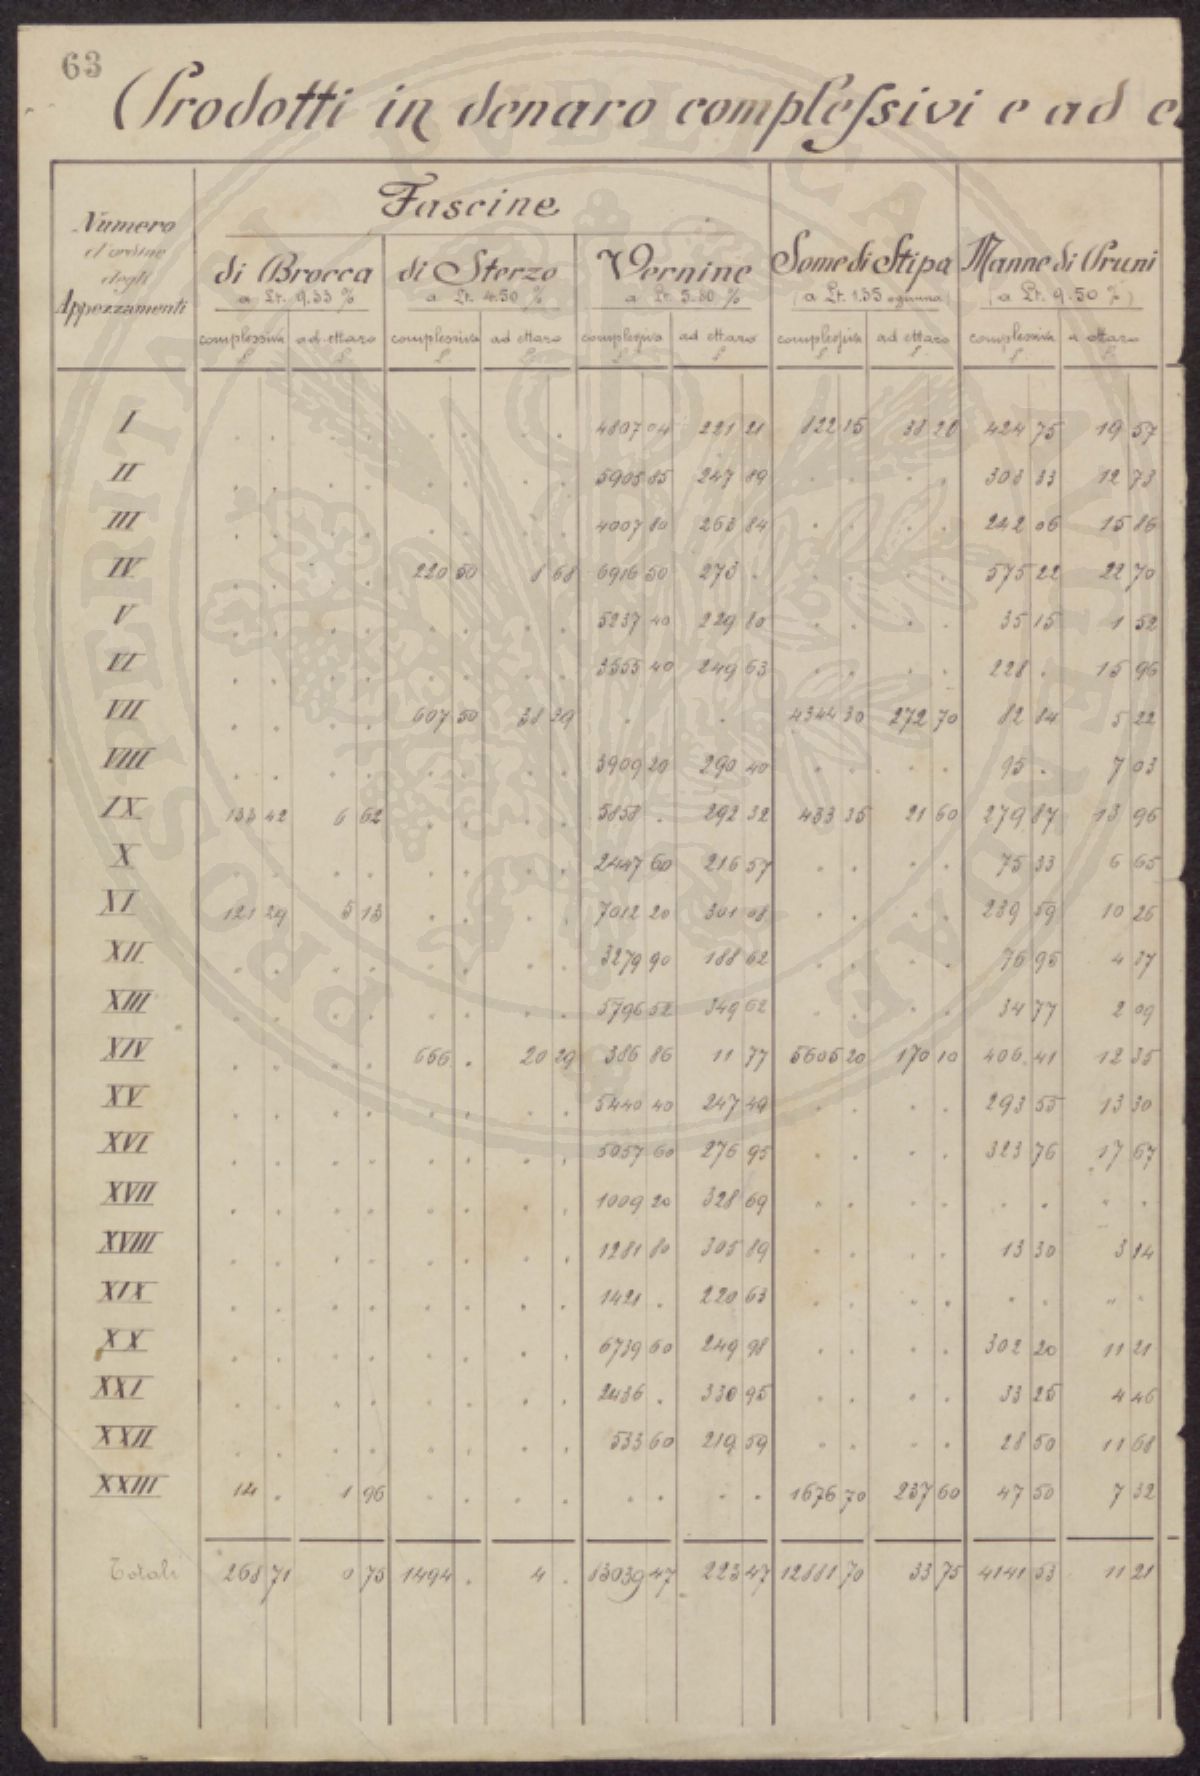 63
Prodotti in denaro complessivi e ad
Numero d'ordine degli Appezzamenti
Fascine
di Brocca
di Sterzo
Vernine
Some di Stipa
Manne di Pruni
a Lt. 9.33 %
a Lt. 4.50 %
a Lt. 5.80 %
(a Lt. 1.35 ognuna)
(a Lt. 9.50 %)
complessivo ad ettaro complessivo ad ettaro complessivo ad ettaro complessivo ad ettaro complessivo a ettaro
I 4807 04 221 21 822 15 38 20 424 75 19 57
II 5905 85 247 89 303 33 12 73
III 4007 80 263 84 242 06 15 86
IV 220 50 8 68 6916 50 273 . 575 22 22 70
V 5237 40 229 80 35 15 1 52
VI 3555 40 249 63 228 . 15 96
VII 607 50 38 29 4344 30 272 70 82 84 5 22
VIII 3909 20 290 40 95 . 7 03
IX 133 42 6 62 5858 . 292 32 433 35 21 60 279 87 13 96
X 2447 60 216 57 75 33 6 65
XI 121 29 5 13 7012 20 301 08 239 59 10 26
XII 3279 90 188 62 76 95 4 37
XIII 5796 52 349 62 34 77 2 09
XIV 666 . 20 29 386 86 11 77 5605 20 170 10 406 41 12 35
XV 5440 40 247 49 293 55 13 30
XVI 5057 60 276 95 323 76 17 67
XVII 1009 20 328 69
XVIII 1281 80 305 89 13 30 3 14
XIX 1421 . 220 63
XX 6739 60 249 98 302 20 11 21
XXI 2436 . 330 95 33 25 4 46
XXII 533 60 219 59 28 50 11 68
XXIII 14 . 1 96 1676 70 237 60 47 50 7 32
Totali 268 71 0 75 1494 . 4 . 83039 47 223 47 12881 70 33 75 4141 53 11 21